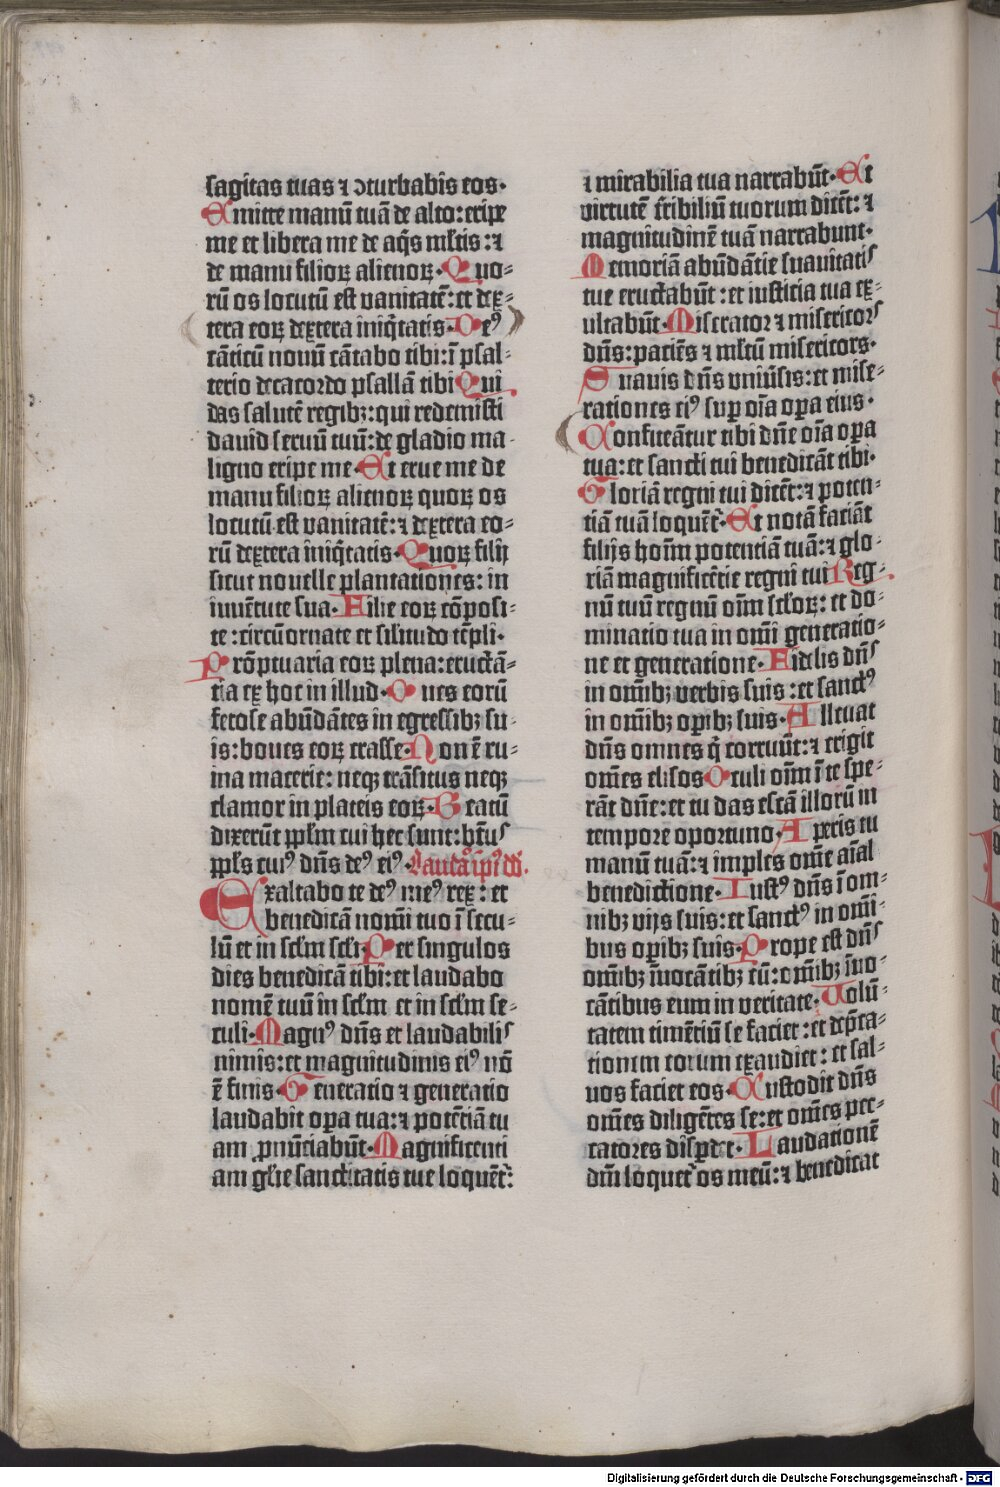 sagitas tuas ⁊ ↄturbabis eos.
Emitte manū tuā de alto: eripe
me et libera me de aq̄s ml̄tis: ⁊
de manu filioꝝ alienoꝝ. Quo⸗
rū os locutū est vanitatē: et dex⸗
tera eoꝝ dextera iniq̄tatis. Deꝰ
cāticū nouū cātabo tibi: ī psal⸗
terio decacordo psallā tibi Qui
das salutē regibꝫ: qui redemisti
dauid seruū tuū: de gladio ma⸗
ligno eripe me. Et erue me de
manu filioꝝ alienoꝝ quoꝝ os
locutū est vanitatē: ⁊ dextera eo⸗
rū dextera iniq̄tatis. Quoꝝ filij
sicut nouelle plantationes: in
iuuētute sua. Filie eoꝝ cōposi⸗
te: circūornate et sil̄itudo tēpli.
Prōptuaria eoꝝ plena: eructā⸗
tia ex hoc in illud. Oues eorū
fetose abūdātes in egressibꝫ su⸗
is: boues eoꝝ crasse. Non ē ru⸗
ina macerie: neqꝫ trāsitus neqꝫ
clamor in plateis eoꝝ. Beatū
dixerūt ppl̄m cui hec sunt: btūs
ppl̄s cuiꝰ dn̄s deꝰ eiꝰ.
Exaltabo te deꝰ meꝰ rex: et
benedicā nomī tuo ī secu⸗
lū et in scl̄m scl̄i. Per singulos
dies benedicā tibi: et laudabo
nomē tuū in scl̄m et in scl̄m se⸗
culi. Magnꝰ dn̄s et laudabilis
nimis: et magnitudinis eiꝰ nō
ē finis. Generatio ⁊ generatio
laudabit oꝑa tua: ⁊ potētiā tu
am ꝓnūtiabūt. Magnificenti
am gl̄ie sanctitatis tue loquēt̄:
⁊ mirabilia tua narrabūt. Et
virtutē t̄ribiliū tuorum dicēt: ⁊
magnitudinē tuā narrabunt.
Memoriā abūdātie suauitatis
tue eructabūt: et iusticia tua ex⸗
ultabūt. Miserator ⁊ misericors
dn̄s: paciēs ⁊ ml̄tū misericors.
Suauis dn̄s vniūsis: et mise⸗
rationes eiꝰ suꝑ oīa oꝑa eius.
Confiteātur tibi dn̄e oīa oꝑa
tua: et sancti tui benedicāt tibi.
Gloriā regni tui dicēt: ⁊ poten⸗
tiā tuā loquēt̄. Et notā faciāt
filijs hoīm potentiā tuā: ⁊ glo⸗
riā magnificētie regni tui Reg⸗
nū tuū regnū om̄ scl̄oꝝ: et do⸗
minatio tua in om̄i generatio⸗
ne et generatione. Fidelis dn̄s
in om̄ibꝫ verbis suis: et sanctꝰ
in om̄ibꝫ oꝑibꝫ suis. Alleuat
dn̄s omnes q̄ corruūt: ⁊ erigit
om̄es elisos Oculi om̄ ī te spe⸗
rāt dn̄e: et tu das escā illorū in
tempore oportuno. Aperis tu
manū tuā: ⁊ imples om̄e aīal
benedictione. Iustꝰ dn̄s ī om⸗
nibꝫ vijs suis: et sanctꝰ in om̄i⸗
bus oꝑibꝫ suis. Prope est dn̄s
om̄ibꝫ īuocātibꝫ eū: om̄ibꝫ īuo⸗
cātibus eum in veritate. Volū⸗
tatem timētiū se faciet: et dep̄ca⸗
tionem eorum exaudiet: et sal⸗
uos faciet eos. Custodit dn̄s
om̄es diligētes se: et om̄es pec⸗
catores disꝑdet. Laudationē
dn̄i loquet̄ os meū: ⁊ benedicat
Digitalisierung gefördert durch die Deutsche Forschungsgemeinschaft - DFG